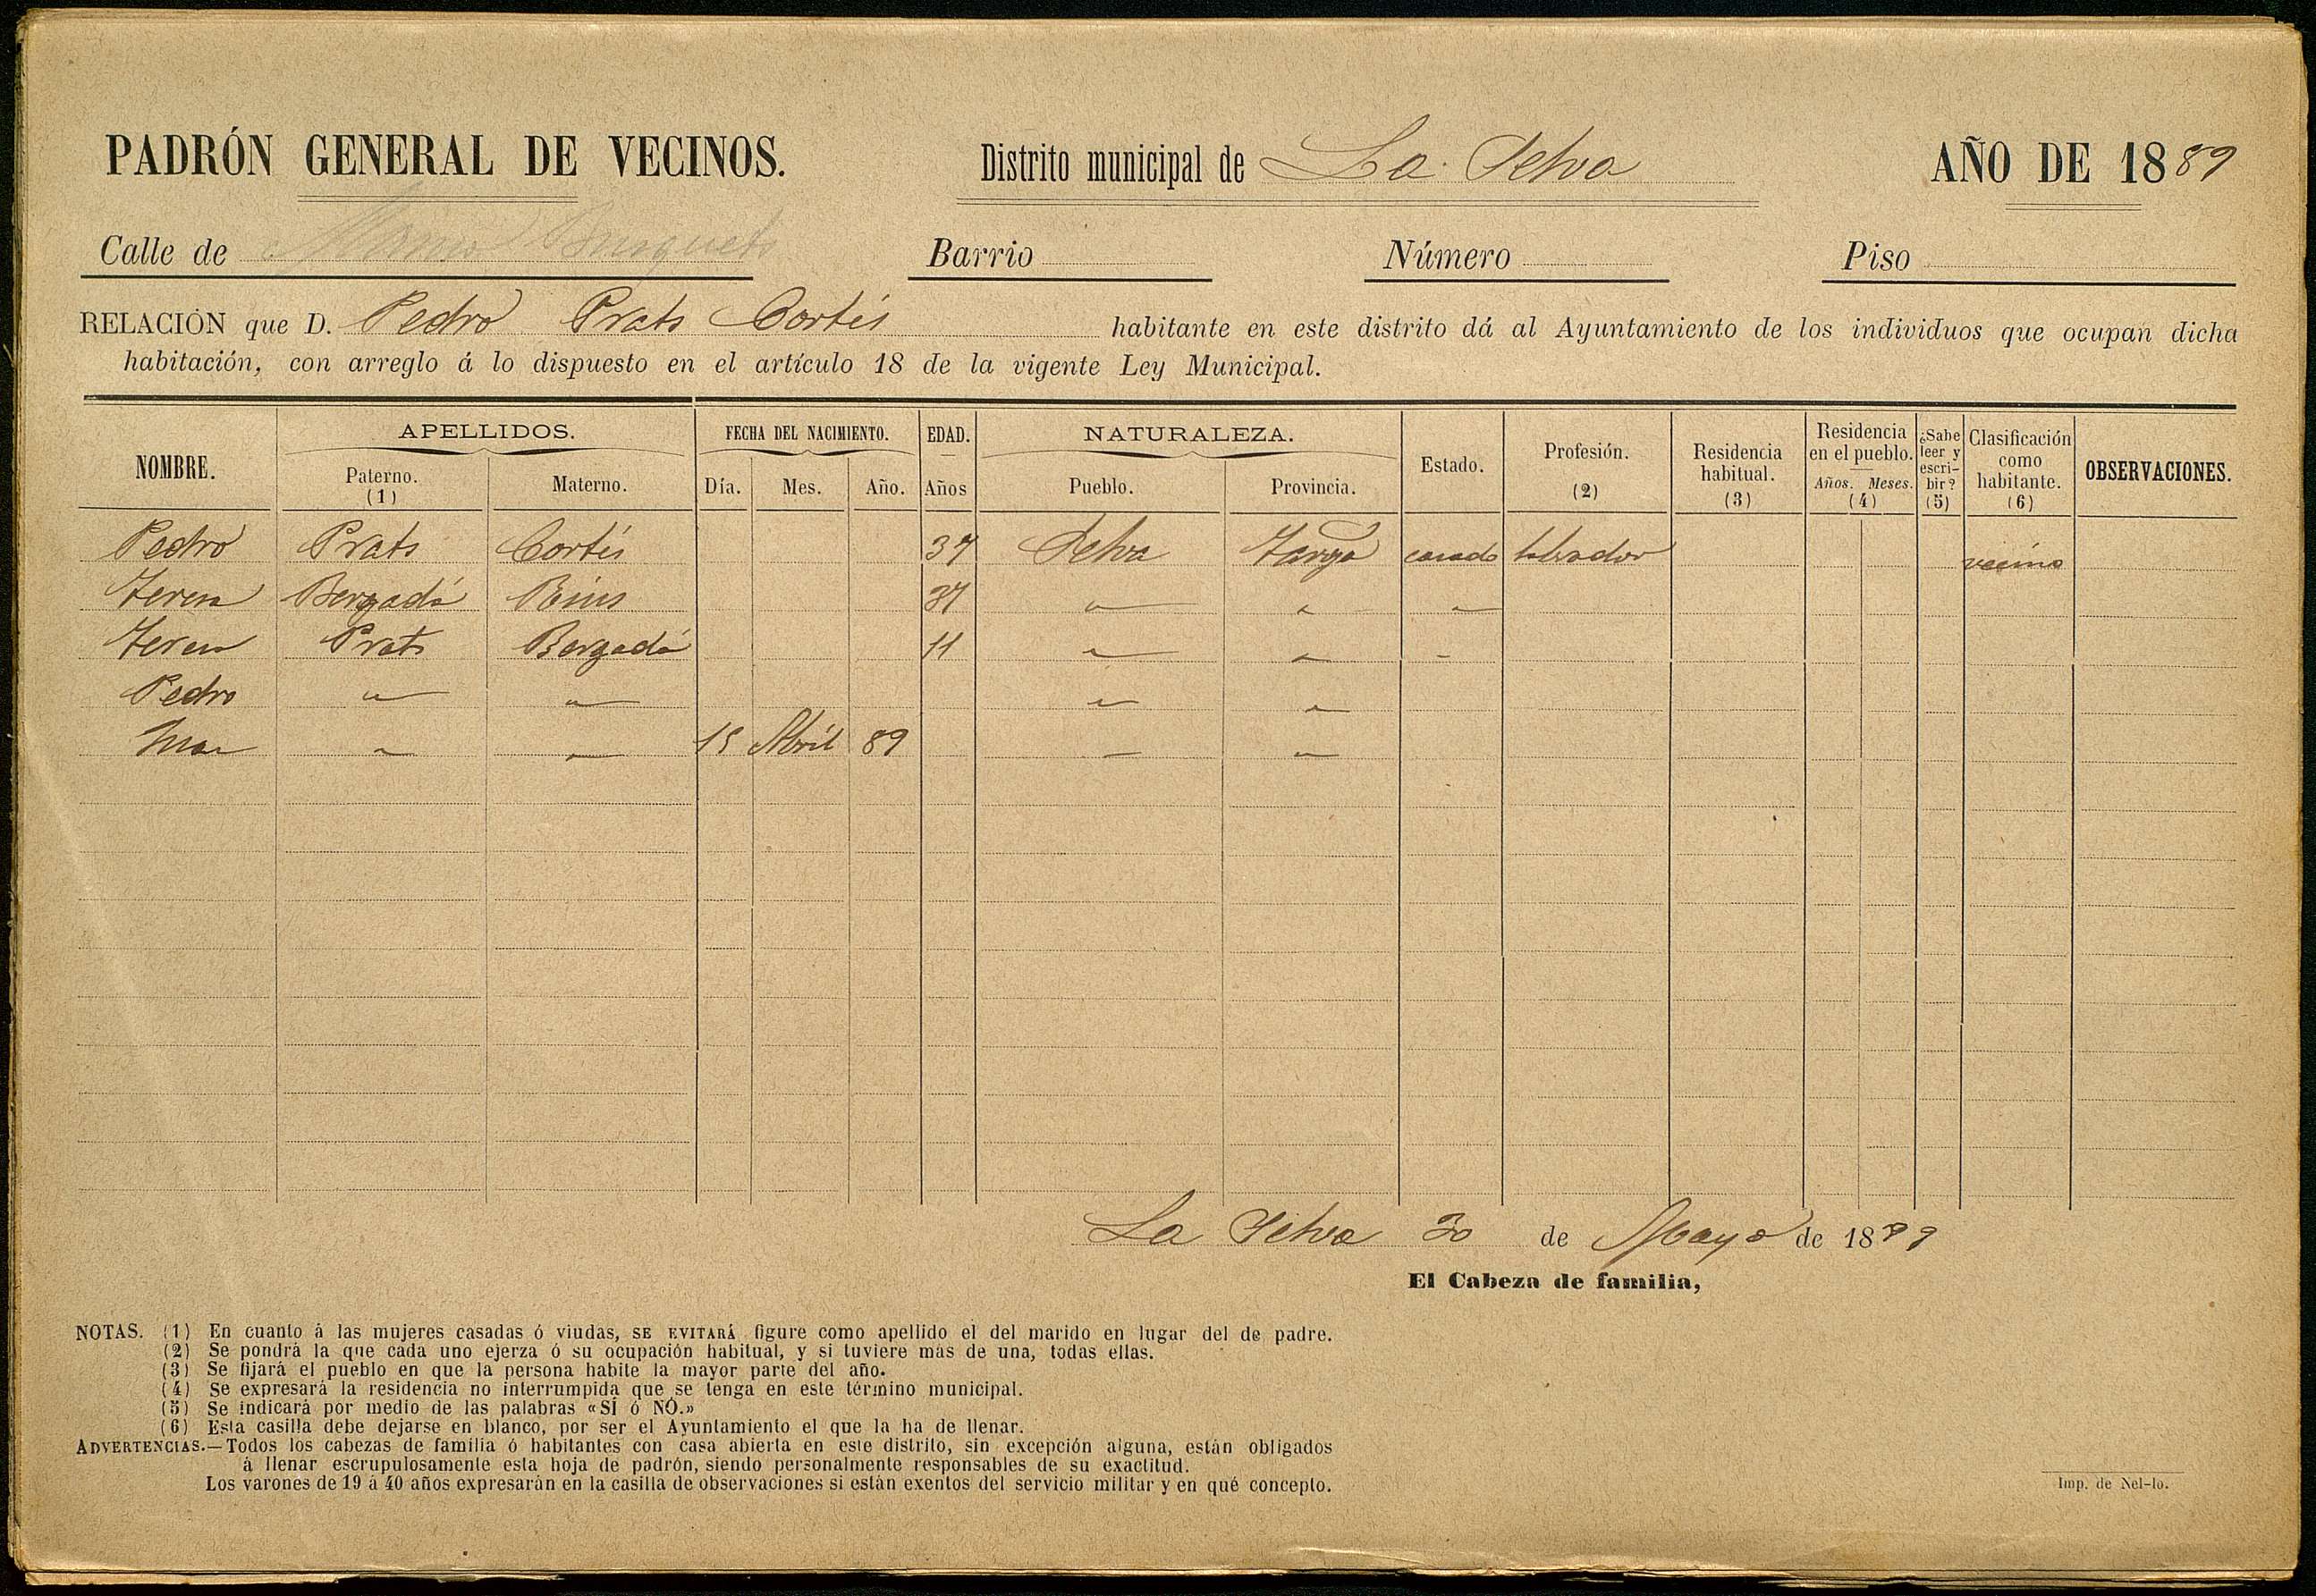 PADRÓN GENERAL DE VECINOS. Distrito municipal de La Selva AÑO DE 1889
Calle de Busquets Barrio Número Piso
RELACIÓN que D. Pedro Prats Cortés habitante en este distrito dá al Ayuntamiento de los individuos que ocupan dicha
habitación, con arreglo á lo dispuesto en el artículo 18 de la vigente Ley Municipal.
NOMBRE. APELLIDOS. FECHA DEL NACIMIENTO. EDAD. NATURALEZA. Estado. Profesión. (2) Residencia habitual. (3) Residencia en el pueblo. Años. Meses. (4) ¿Sabe leer y escri-bir? (5) Clasificación como habitante. (6) OBSERVACIONES.
Paterno. (1) Materno. Día. Mes. Año. Años Pueblo. Provincia.
Pedro Prats Cortés 37 Selva Targa casado labrador vecino
Teresa Bergadá Pius 37 " " "
Teresa Prats Bergadá 11 " " "
Pedro " " " "
" " 15 Abril 89 " "
La Selva 30 de Mayo de 1889
El Cabeza de familia,
NOTAS. (1) En cuanto á las mujeres casadas ó viudas, SE EVITARÁ figure como apellido el del marido en lugar del de padre.
(2) Se pondrá la que cada uno ejerza ó su ocupación habitual, y si tuviere más de una, todas ellas.
(3) Se fijará el pueblo en que la persona habite la mayor parte del año.
(4) Se expresará la residencia no interrumpida que se tenga en este término municipal.
(5) Se indicará por medio de las palabras «SÍ ó NÓ.»
(6) Esta casilla debe dejarse en blanco, por ser el Ayuntamiento el que la ha de llenar.
ADVERTENCIAS.—Todos los cabezas de familia ó habitantes con casa abierta en este distrito, sin excepción alguna, están obligados
á llenar escrupulosamente esta hoja de padrón, siendo personalmente responsables de su exactitud.
Los varones de 19 á 40 años expresarán en la casilla de observaciones si están exentos del servicio militar y en qué concepto.
Imp. de Nel-lo.